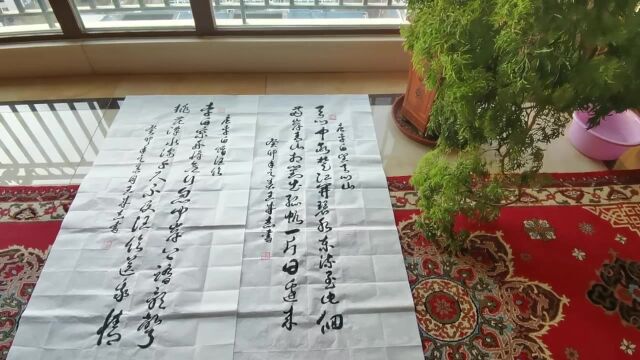 唐李白望天门山
天门中断楚江开碧水东流至此
两岸青山相对出孤帆一片日边来
癸卯年 书
唐李白赠汪伦
李白乘舟将欲行忽闻岸上踏歌声
桃花潭水深千尺不及汪伦送我情
癸卯年 书